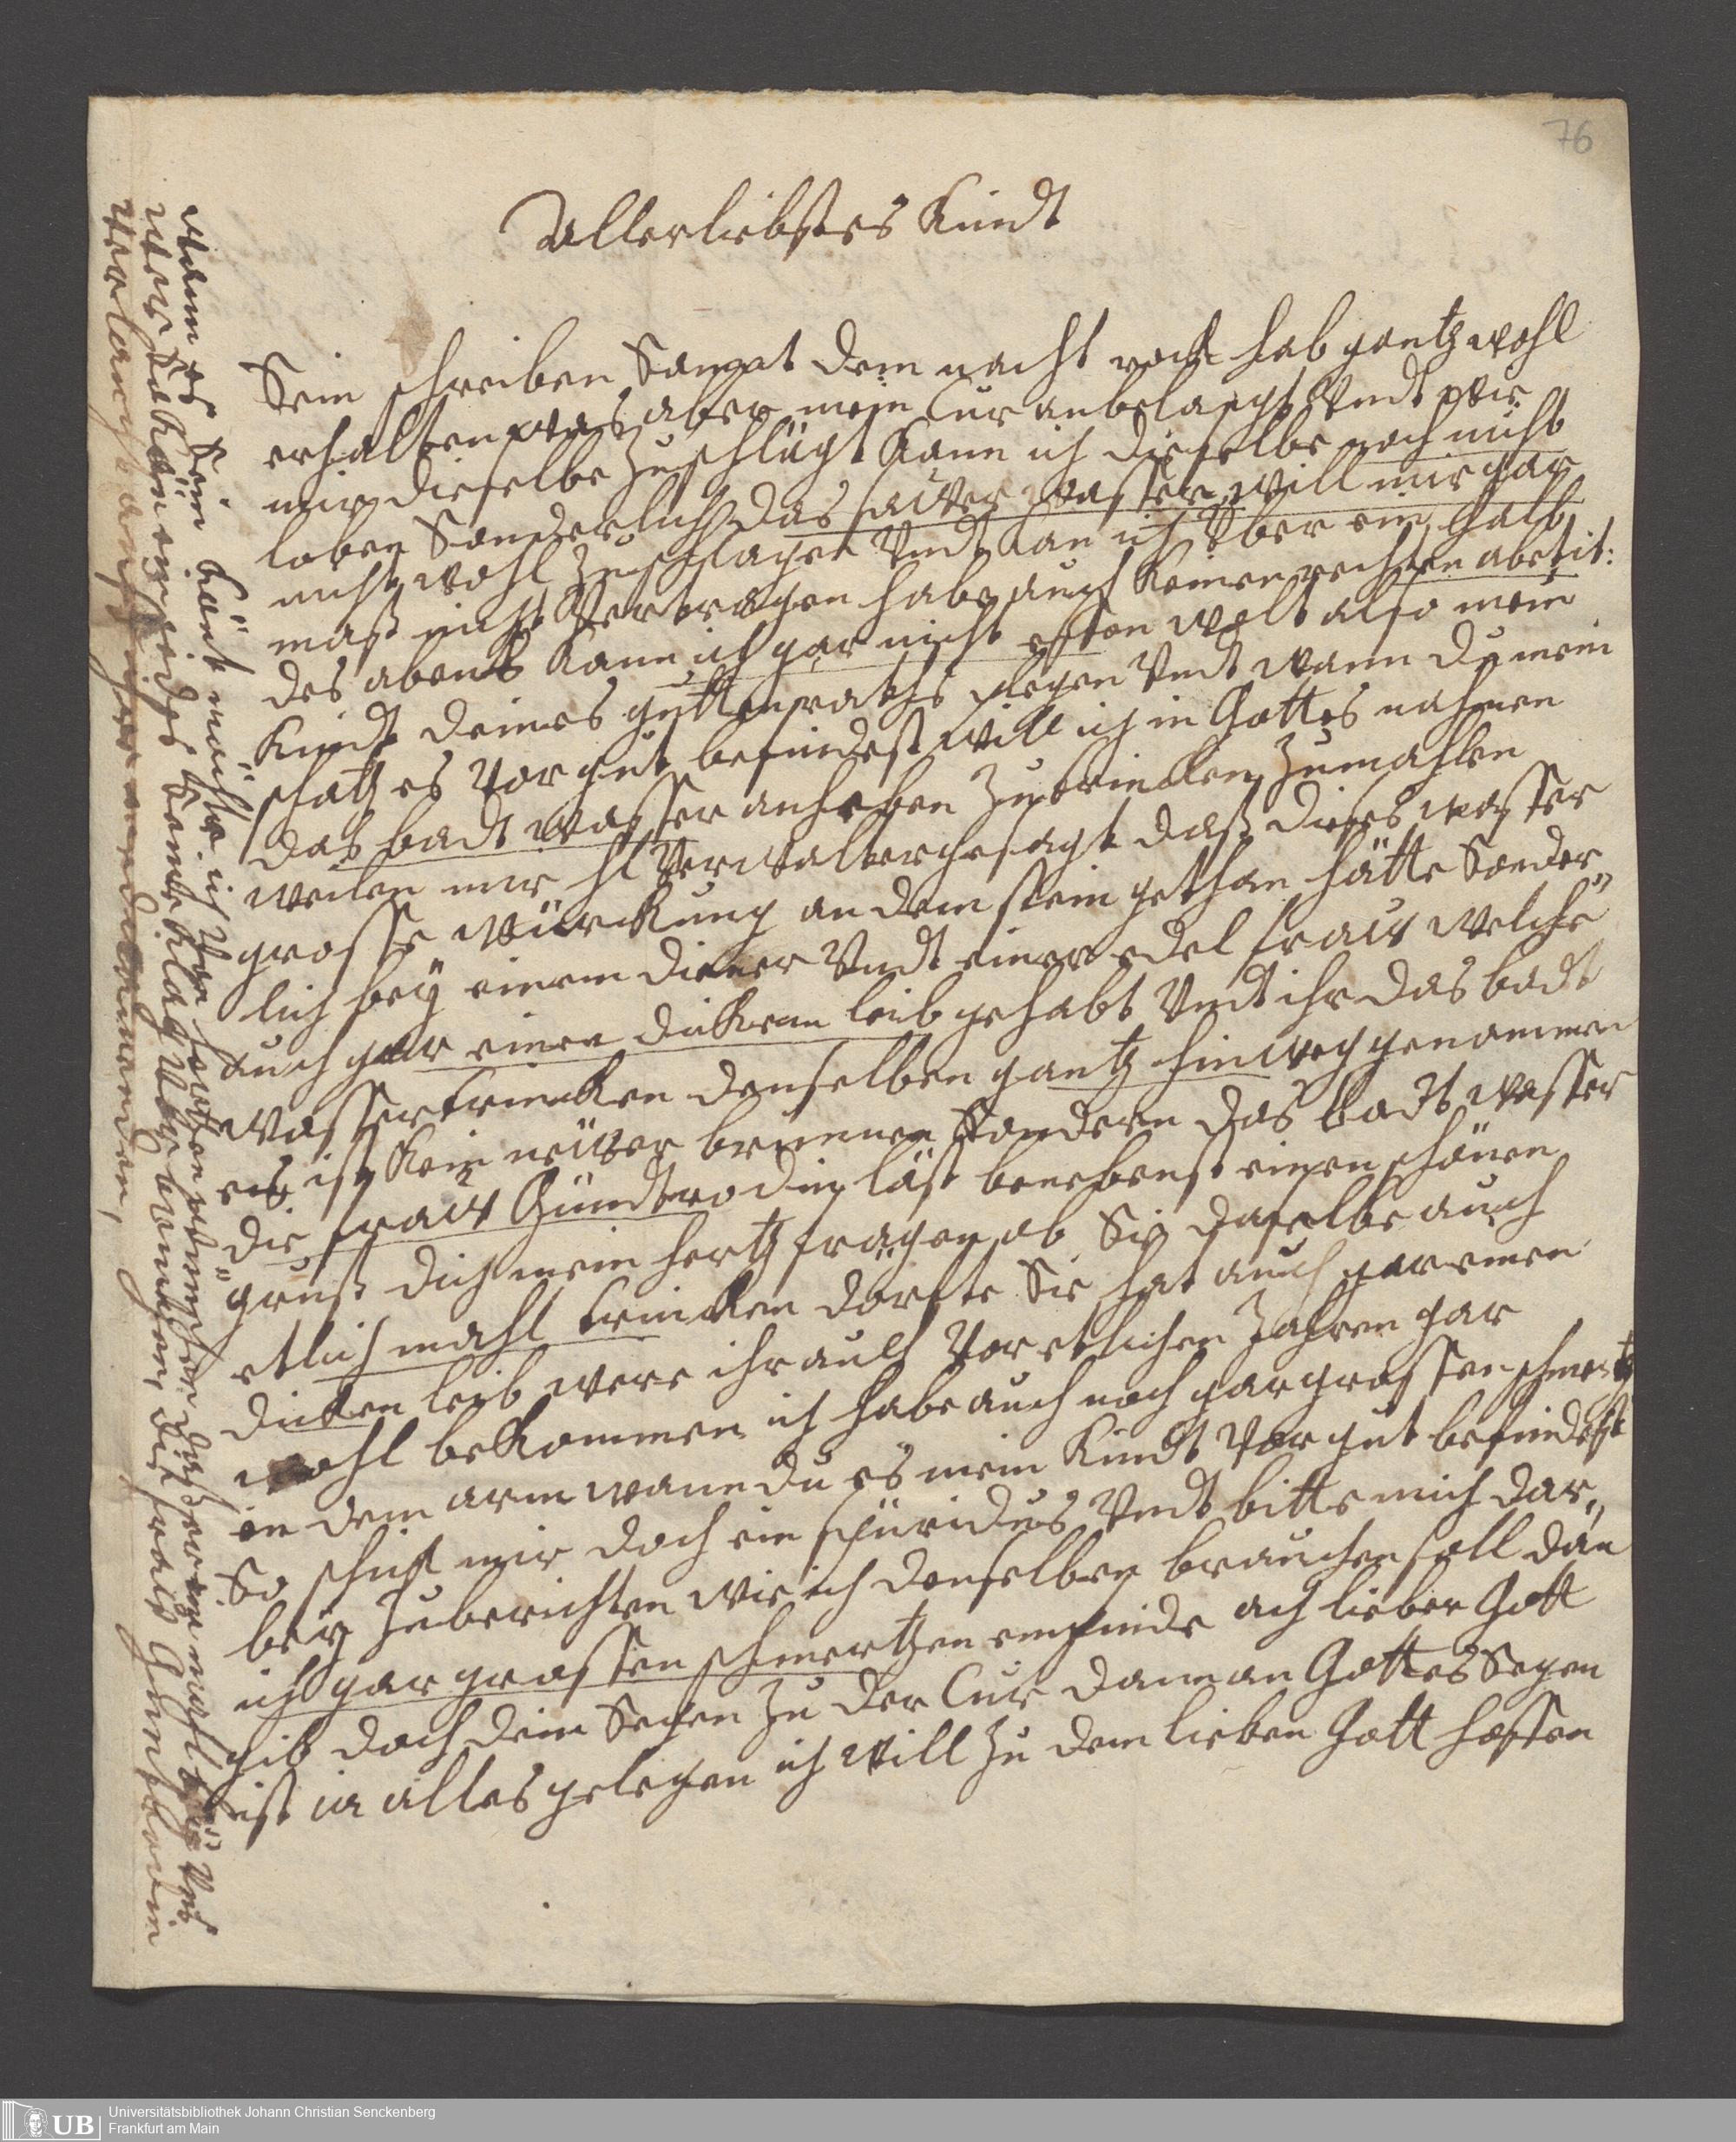 76
Allerliebstes Kindt
Sein schreiben Sampt dem nacht rock hab gantz wohl
erhalten was aber mein Cur anbelangt Undt wie
mir dieselbe Zuschlägt Kann ich dieselbe noch nicht
loben Sonderlich das sauer wasser will mir gar
nicht wohl Zuschlagen Undt Kan ich Über ein halb
maß nicht Vertragen habe auch Keinen rechten abetit:
des abents Kann ich gar nicht essen wolt also mein
Kindt deines gutten raths pflegen Undt wann du mein
schatz es Vor gut befindest will ich in Gottes nahmen
das badt wasser anheben Zu trincken Zumahlen
weilen mir hl Verwalter gesagt daß dieses wasser
grosse würckung an dem stein gethan hätte Sonder„
lich bey einem diener Undt einer edel frau welche
auch gar einen dicken leib gehabt Undt ihr das badt
wasser trincken denselben gantz hinweg genommen
es ist Kein neuer brunnen Sondern das badt wasser
die frau Gündtrodin läst benebenst einen schönen
gruß dich mein hertz fragen ob Sie daselbe auch
etlich mahl trincken dörfte Sie hat auch gar einen
dicken leib were ihr auch Vor etlichen Jahren gar
wohl bekommen ich habe auch noch gar grossen schmertz
in dem arm wann du es mein Kindt Vor gut befindest
So schick mir doch ein spiridus Undt bitte mich dar„
bey Zu berichten wie ich denselben brauchen soll dan
ich gar grossen schmertzen empfinde ach lieber Gott
gib doch dein Segen Zu der Cur dann an Gottes Segen
ist ia alles gelegen ich will Zu dem lieben Gott hoffen
wann es sein könt möchte ich von hertzen wünschen daß er einmahl bey Uns
wer die frau Gündrodin
verlangt auch